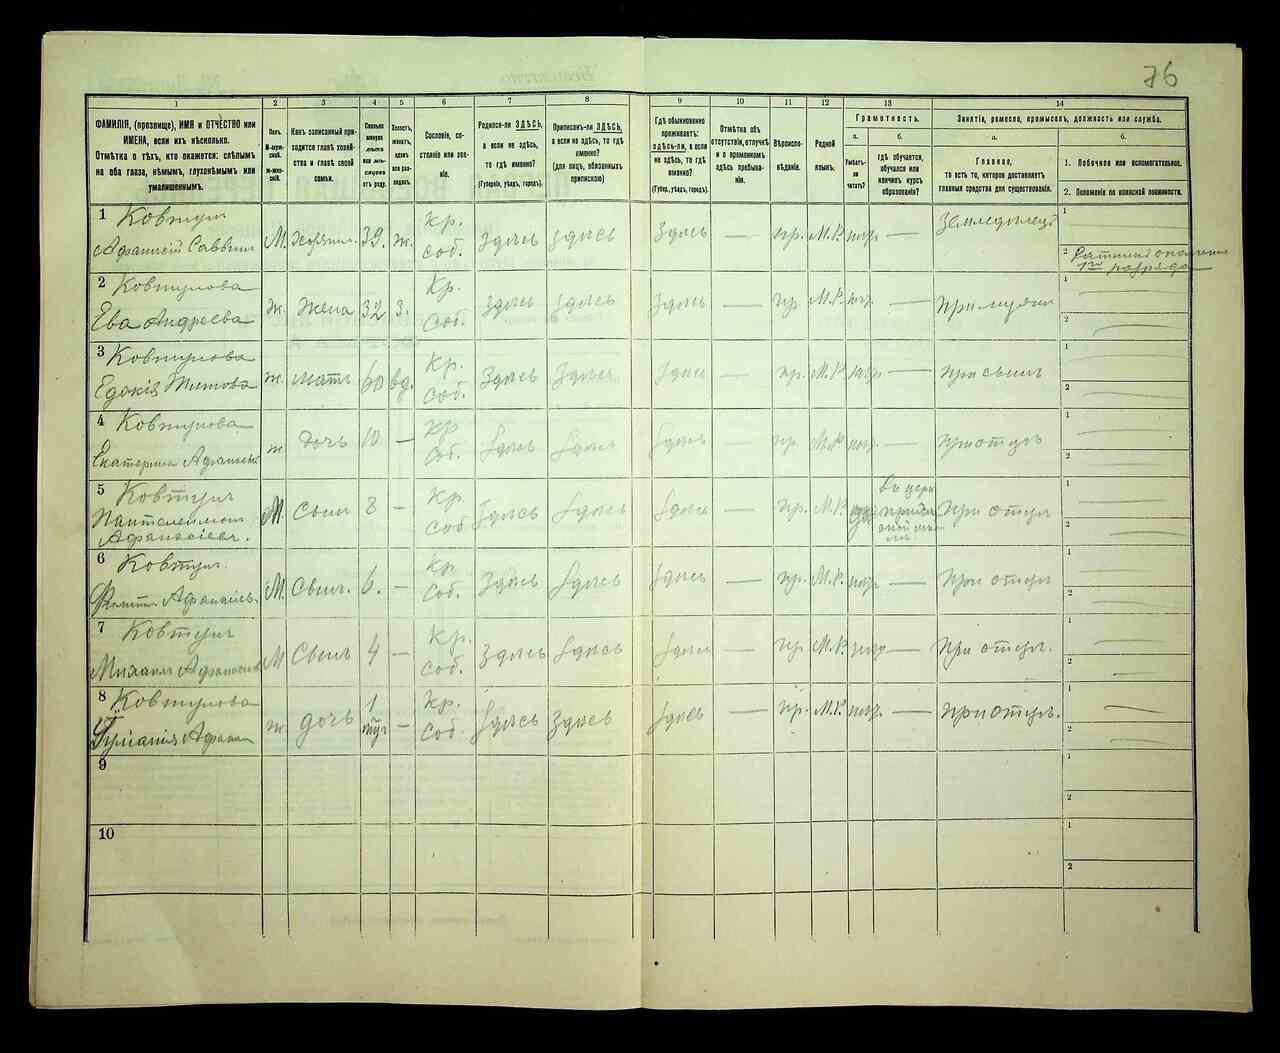 76
1 2 3 4 5 6 7 8 9 10 11 12 13 14
ФАМИЛІЯ, (прозвище), ИМЯ и ОТЧЕСТВО или
ИМЕНА, если ихъ нѣсколько.
Отмѣтка о тѣхъ, кто окажется: слѣпымъ
на оба глаза, нѣмымъ, глухонѣмымъ или
умалишеннымъ.
Полъ.
М-мужской.
Ж-женскій.
Какъ записанный приходится
главѣ хозяйства
и главѣ своей
семьи.
Сколько
минуло
лѣтъ
или мѣсяцевъ
отъ роду.
Холостъ,
женатъ,
вдовъ
или разведенъ.
Сословіе, состояніе
или званіе.
Родился-ли ЗДѢСЬ,
а если не здѣсь,
то гдѣ именно?
(Губернія, уѣздъ, городъ).
Приписанъ-ли ЗДѢСЬ,
а если не здѣсь, то гдѣ
именно?
(для лицъ, обязанныхъ
припискою)
Гдѣ обыкновенно
проживаетъ:
здѣсь-ли, а если
не здѣсь, то гдѣ
именно?
(Губер., уѣздъ, городъ).
Отмѣтка объ
отсутствіи, отлучкѣ
и о временномъ
здѣсь пребываніи.
Вѣроисповѣданіе.
Родной
языкъ.
Грамотность.
а.
Умѣетъ-ли
читать?
б.
гдѣ обучается,
обучался или
кончилъ курсъ
образованія?
Занятіе, ремесло, промыселъ, должность или служба.
а.
Главное,
то есть то, которое доставляетъ
главныя средства для существованія.
б.
1. Побочное или вспомогательное.
2. Положеніе по воинской повинности.
1 Ковтунъ
Афанасій Саввинъ М. хозяин. 39. ж. кр. соб. Здѣсь здѣсь Здѣсь — пр. М.Р. — Земледѣлецъ 1
2 Ратникъ ополченія
1го разряда
2 Ковтунова
Ева Андреева ж. жена 32 з. Кр. Соб. Здѣсь здѣсь Здѣсь — пр. М.Р. — При мужи 1
2
3 Ковтунова
Титова ж. мать 60 вд. Кр. Соб. Здѣсь Здѣсь Здѣсь — пр. М.Р. — При сынѣ 1
2
4 Ковтунова
Екатерина ж дочь 10 — кр Соб. Здѣсь Здѣсь Здѣсь — пр. М.Р — При отцѣ 1
2
5 Ковтунъ
Пантелеймонъ
Афанасіевъ. М. Сынъ 8 — Кр. Соб Здѣсь Здѣсь Здѣсь — пр. М.Р. При отцѣ 1
2
6 Ковтунъ.
М. Сынъ. 6. — кр Соб. Здѣсь Здѣсь Здѣсь — пр. М.Р. — При отцѣ 1
2
7 Ковтунъ
Михаилъ М Сынъ 4 — Кр. соб. Здѣсь Здѣсь Здѣсь — пр М.Р. — При отцѣ. 1
2
8 Ковтунова
ж дочь 1 — Кр. Соб. Здѣсь Здѣсь Здѣсь — пр. М.Р. — При отцѣ. 1
2
9 1
2
10 1
2